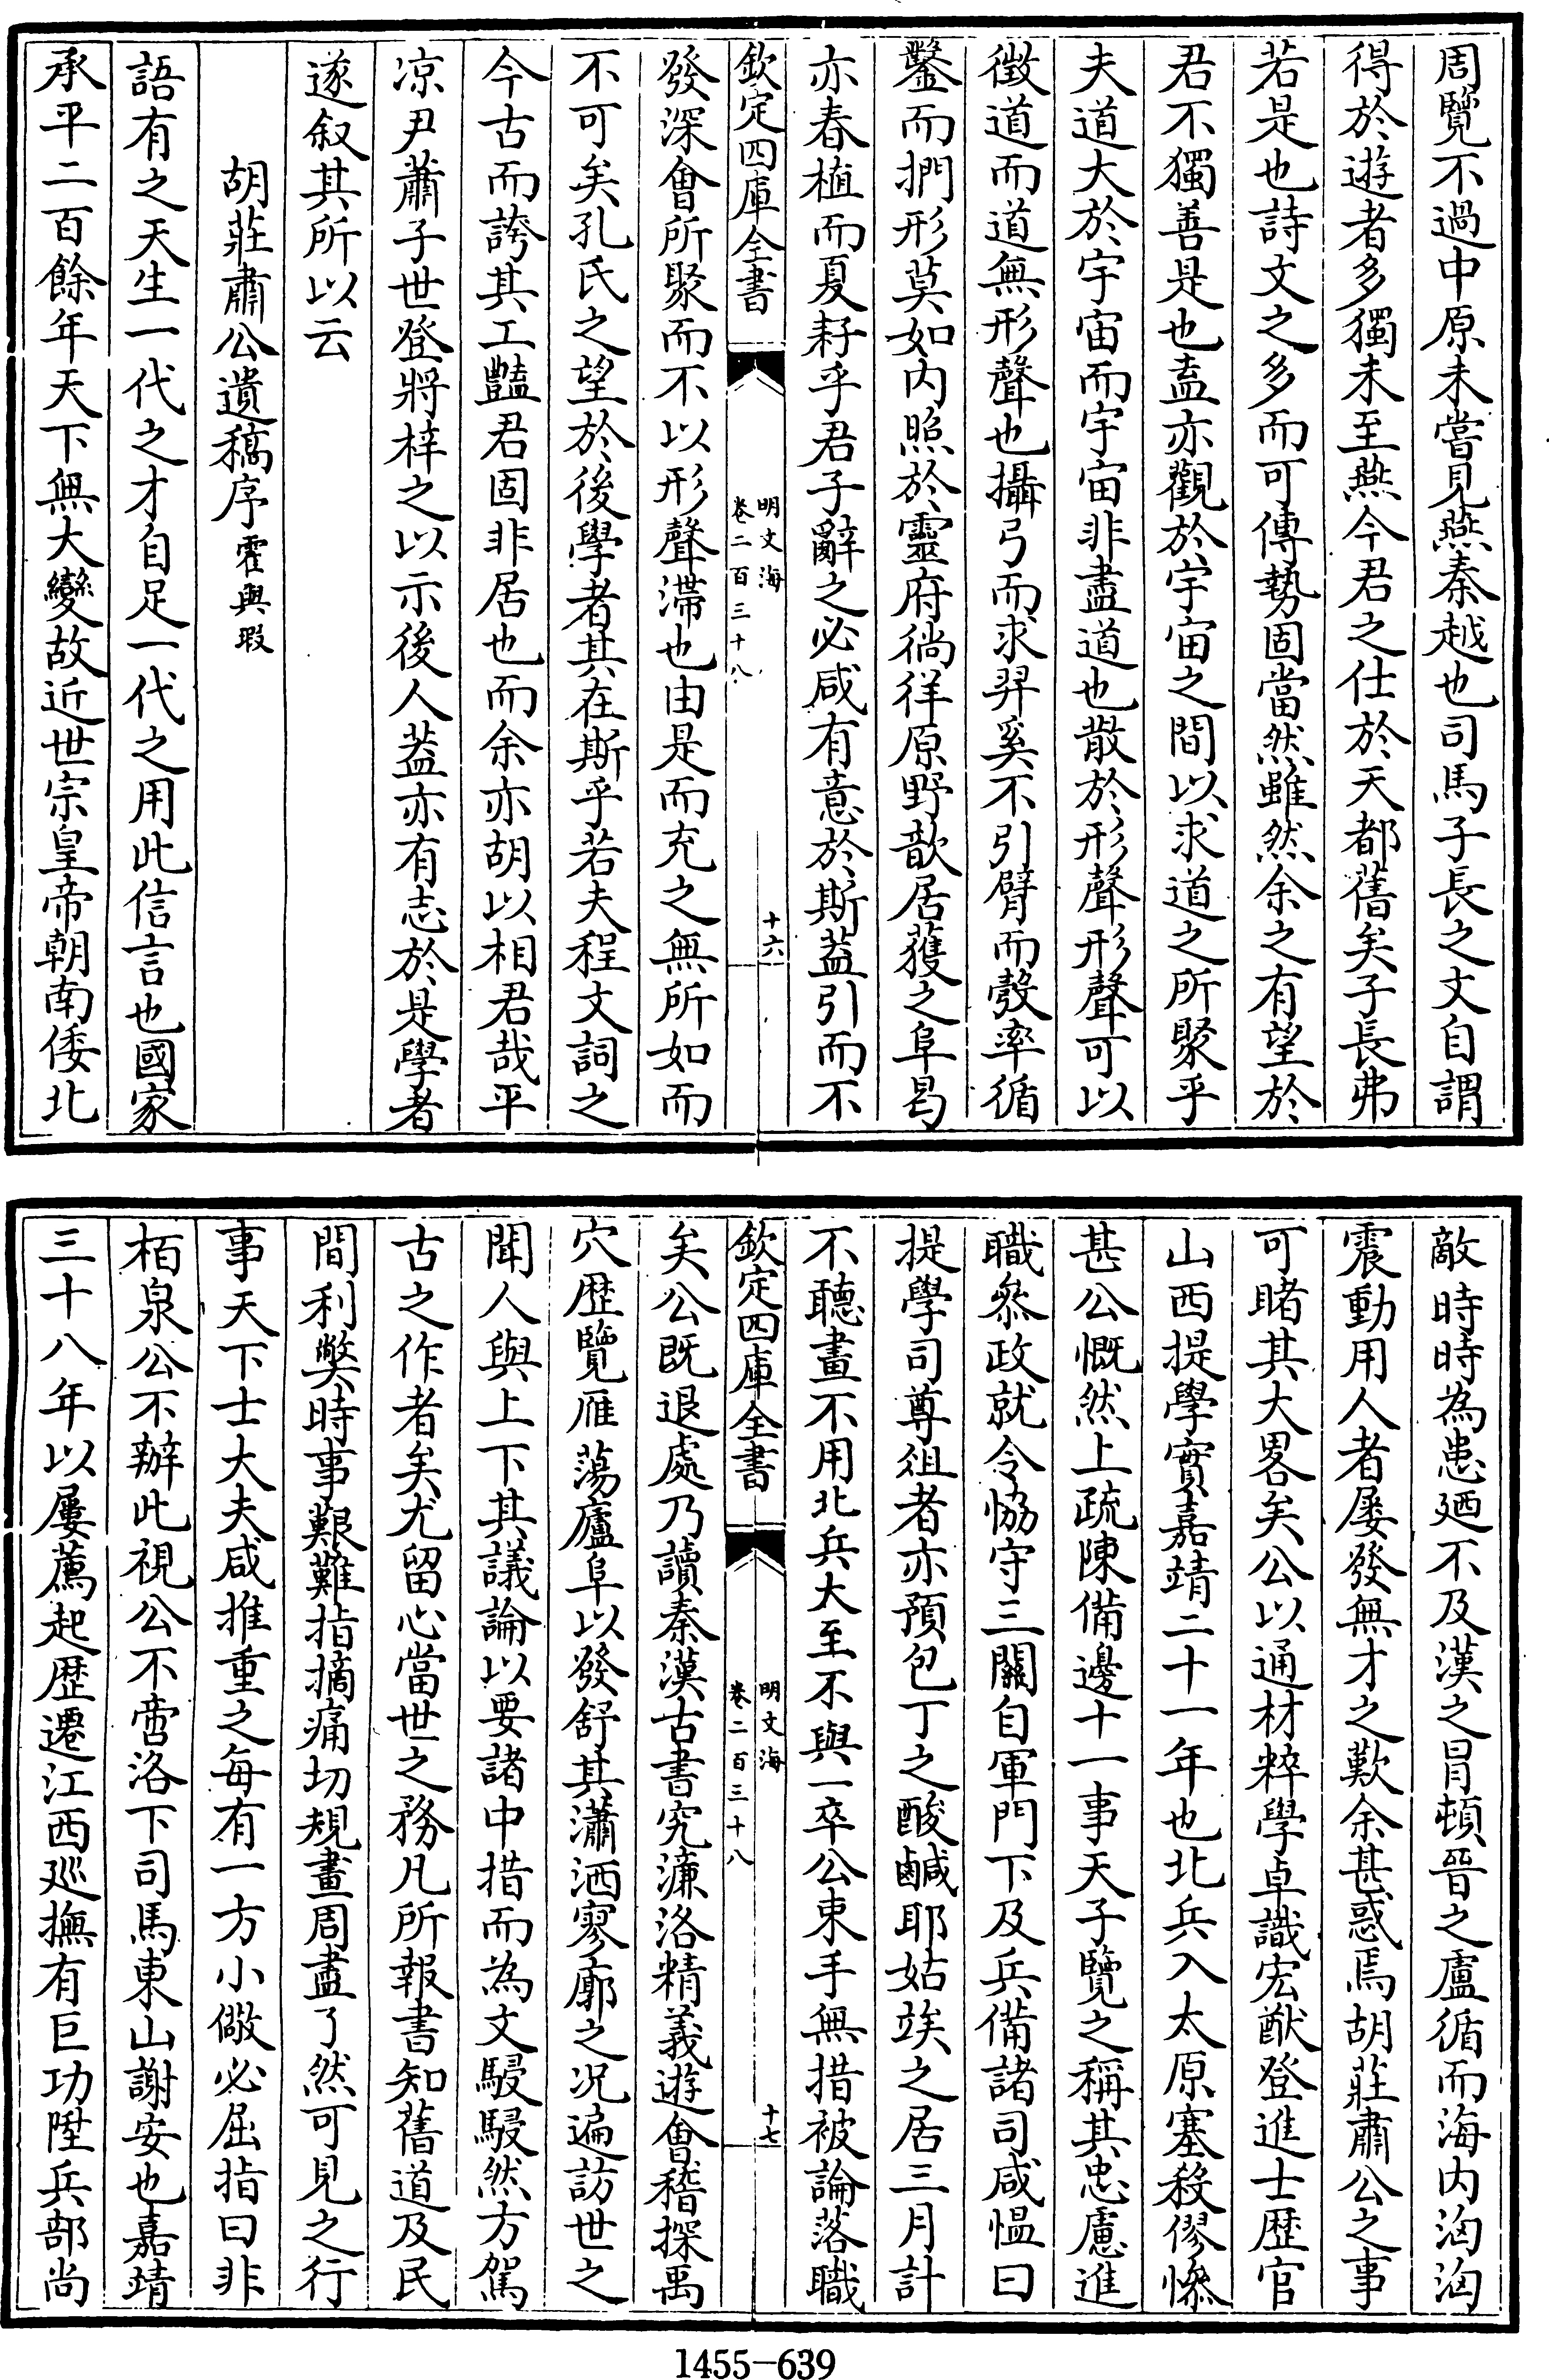 周覽不過中原未嘗見燕秦越也司馬子長之文自謂
得於遊者多獨未至燕今君之仕於天都舊矣子長弗
若是也詩文之多而可傳勢固當然雖然余之有望於
君不獨善是也盍亦觀於宇宙之間以求道之所聚乎
夫道大於宇宙而宇宙非盡道也散於形聲形聲可以
徴道而道無形聲也攝弓而求羿奚不引臂而彀率循
鑿而捫形莫如内照於靈府徜徉原野歆居獲之阜曷
亦春植而夏耔乎君子辭之必咸有意於斯葢引而不
欽定四庫全書
明文海
卷二百三十八
十六
發深會所聚而不以形聲滯也由是而充之無所如而
不可矣孔氏之望於後學者其在斯乎若夫程文詞之
今古而誇其工豔君固非居也而余亦胡以相君哉平
凉尹蕭子世登將梓之以示後人葢亦有志於是學者
遂叙其所以云
胡莊肅公遺稿序霍與瑕
語有之天生一代之才自足一代之用此信言也國家
承平二百餘年天下無大變故近世宗皇帝朝南倭北
敵時時為患廼不及漢之冒頓晉之盧循而海内洶洶
震動用人者屡發無才之歎余甚惑焉胡莊肅公之事
可睹其大畧矣公以通材粹學卓識宏猷登進士歴官
山西提學實嘉靖二十一年也北兵入太原塞殺僇慘
甚公慨然上疏陳備邊十一事天子覽之稱其忠慮進
職叅政就令恊守三關自軍門下及兵備諸司咸愠曰
提學司尊俎者亦預包丁之酸鹹耶姑竢之居三月計
不聽畫不用北兵大至不與一卒公束手無措被論落職
欽定四庫全書
明文海
卷二百三十八
十七
矣公既退處乃讀秦漢古書究濂洛精義遊會稽探禹
穴歴覽雁蕩廬阜以發舒其瀟洒寥廓之况遍訪世之
聞人與上下其議論以要諸中措而為文駸駸然方駕
古之作者矣尤留心當世之務凡所報書知舊道及民
間利獘時事艱難指摘痛切規畫周盡了然可見之行
事天下士大夫咸推重之每有一方小儆必屈指曰非
栢泉公不辦此視公不啻洛下司馬東山謝安也嘉靖
三十八年以屢薦起歴遷江西廵撫有巨功陞兵部尚
1455-639